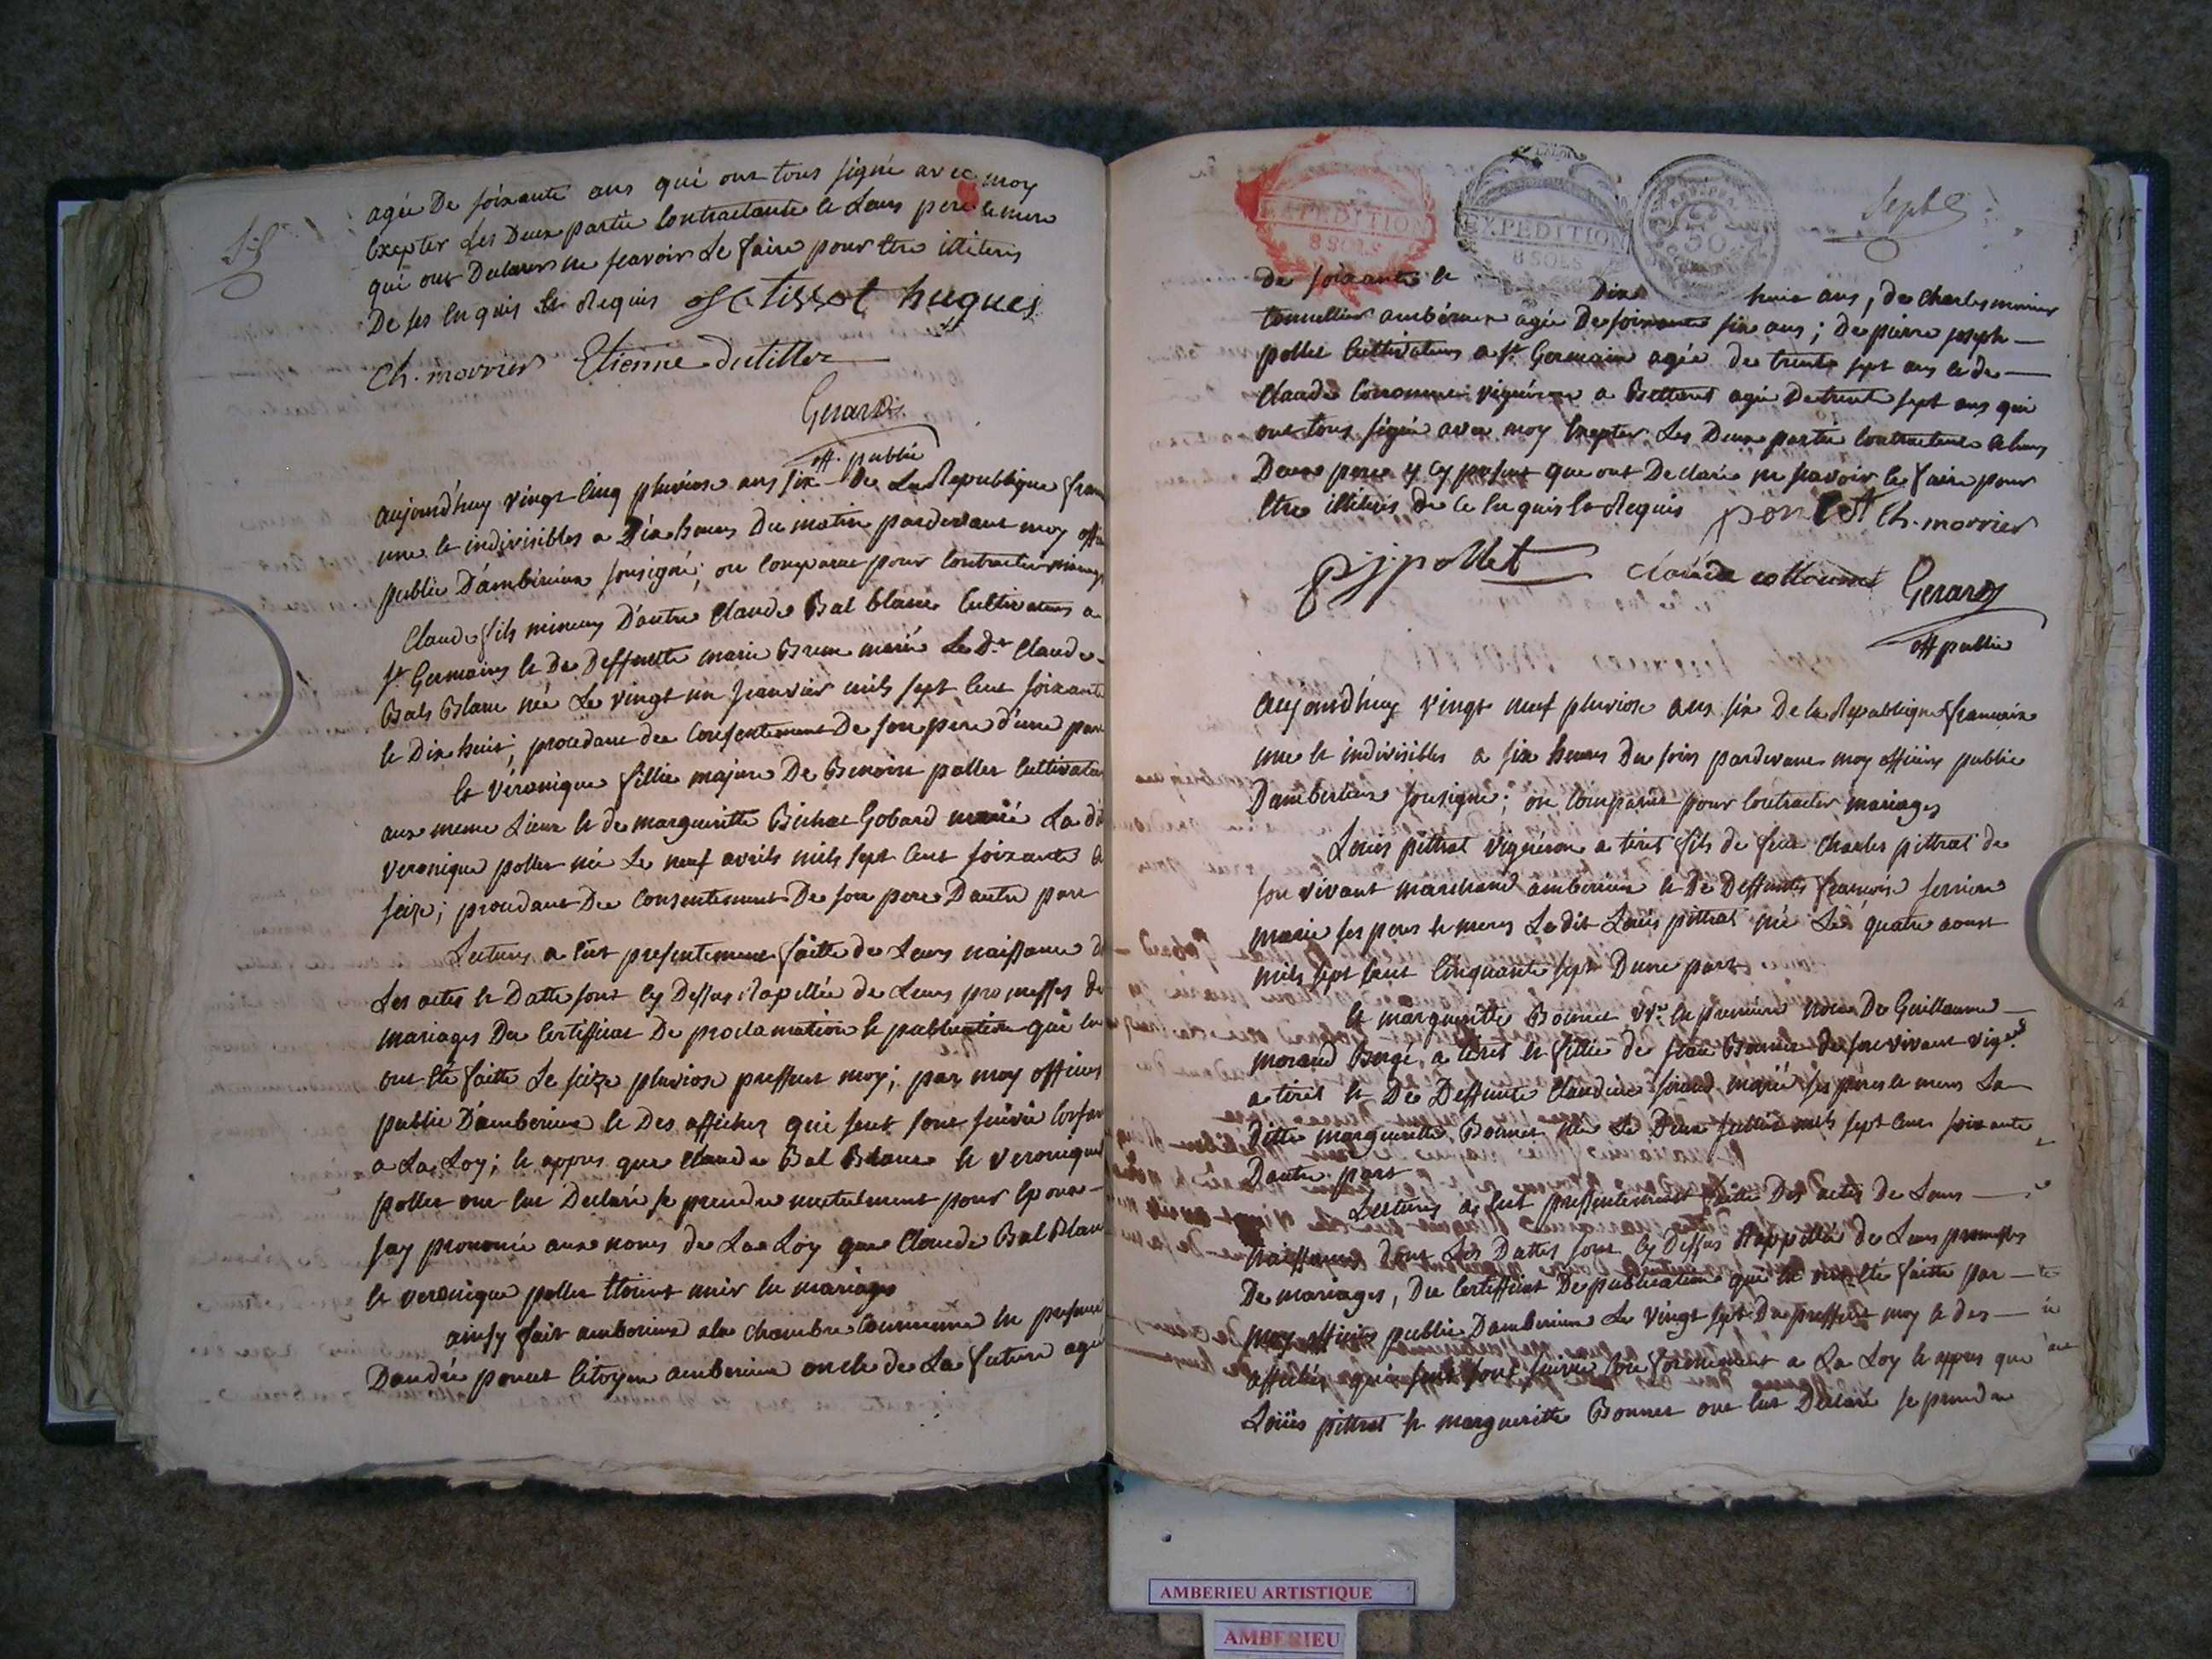 agée De soixante ans qui ont tous signé avec moy
Exepter Les Deux partie Contractante et Leurs pere et mere
qui ont Declarer ne scavoir Le faire pour etre illiteris
De ses enquis et Requis tissot hugues
Ch. morrier Etienne dutillez
Gerard
off. public
aujourd'huy vingt Cinq pluviose ans six De La Republique
une et indivisibles a Dix heures Du matin pardevant moy
public D'ambérieux sousigné; on Comparut pour Contracter mariage
Claude fils mineur D'autre Claude Bal blanc Cultivateur a
St Germains et De Deffunte marie Brun marié Le Dt Claude
Bals Blanc née Le vingt un Jeanvier mils sept Cent soixante
et Dix huit; procedant du Consentement De son pere d'une part
Et véronique fillie majure De Benoit pollet Cultivateur
aux meme Lieux et de margueritte Bichat Gobard marié La
veronique pollet née Le neuf avrils mils sept Cent soixante
seize; procedant Du Consentement De son pere Dautre part
Lectures a Eut presentement faitte de Leurs naissance
Les actes et Datte sont Cy Dessus Rapellée de Leurs promesses de
mariages Du Certifficat De proclamation et publication qui
ont été faitte Le seize pluviose pressent moy; par moy officier
public D'amberieux et Des affiches qui sent sont suivie
a La Loy; et appres que Claude Bal Blanc et veronique
pollet ont Eut Declaré se prendre mutuelement pour Epoux
jay prononcé aux noms de La Loy que Claude Bal Blanc
et veronique pollet Etoient unir en mariage
ainsy fait amberieux a la Chambre Commune en presence
Dandré poncet Citoyen amberieux oncle de La future agé
EXPEDITION
8 SOLS
EXPEDITION
8 SOLS
50
Sept
De soixante et Dix huit ans, de Charles morrier
tonnellier ambérieux agée De soixante six ans; de pierre joseph
pollet Cultivateurs a St Germain agée de trente sept ans et de
Claude Cottonnet vignéron a Bettant agée De trente sept ans qui
ont tous signé avec moy Exepter Les Deux partie Contractante et Leurs
Deux pere y Cy present que ont Declaré ne scavoir le faire pour
Etre illiteris de Ce Enquis et Requis poncet Ch. morrier
pjpollet claude cottonnet Gerard
off public
Aujourd'huy vingt neuf pluviose ans six De la Republique francaise
une et indivisibles a six heures Du soirs pardevant moy officier public
D'amberieux sousigné; on Comparut pour Contracter mariages
Louis pittrat vignéron a tiret fils de feut Charles pittrat de
son vivant marchand amberieux et De Deffunte francoise
marié ses pere et meres Le dit Louis pittrat née Le quatre aoust
mils sept Cent Cinquante sept D'une part
Et margueritte Bonnet vve En premiere noces De Guillaume
morand Bergé, a tiret et fillie de jean Bonnet de son vivant
a tiret et De Deffunte Claudine marié ses peres et meres La
Ditte margueritte Bonnet née Le Deux mils sept Cent soixante
Dautre part
Lectures a Eut pressentement faitte Des actes de Leurs
naissance dont Les Dattes sont Cy Dessus Rappellée de Leurs promesses
De mariages, Du Certifficat De publication qui En ont été faitte par
moy officier public Damberieux Le vingt sept Du pressent moy et des
affiches qui sent sont suivie Conformement a La Loy et appres que
Loüis pittrat et margueritte Bonnet ont Eut Déclaré se prendre
AMBERIEU ARTISTIQUE
AMBERIEU